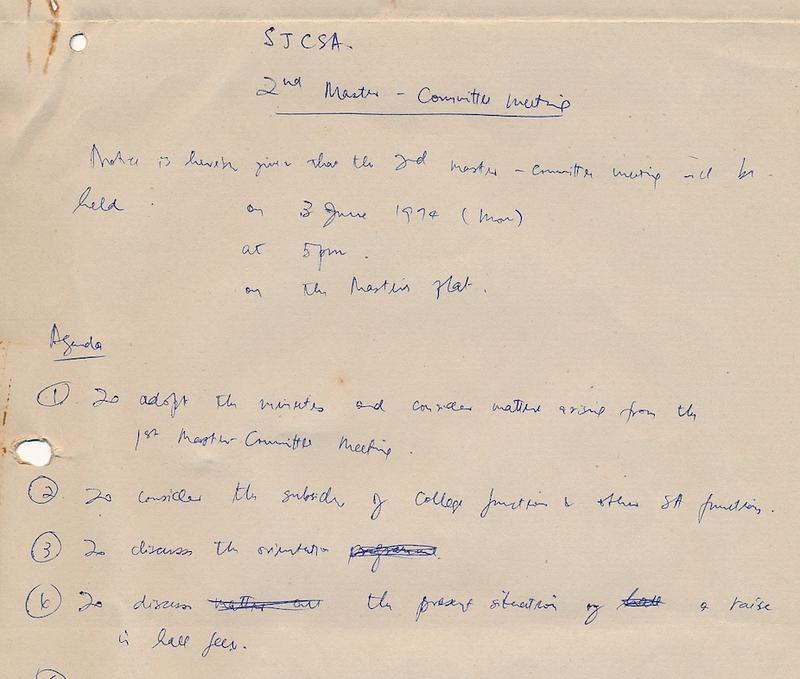 SJCSA.
2nd Master - Committee Meeting
Notice is hereby given that the 2nd Master - Committee meeting will be
held on 3 June 1974 (Mon)
at 5pm.
on the Master's flat.
Agenda
① To adopt the minutes and consider matters arising from the
1st Master-Committee Meeting.
② To consider the subsidy of College function & other SA functions.
③ To discuss the orientation programme.
To discuss the present situation of a raise
in hall fees.